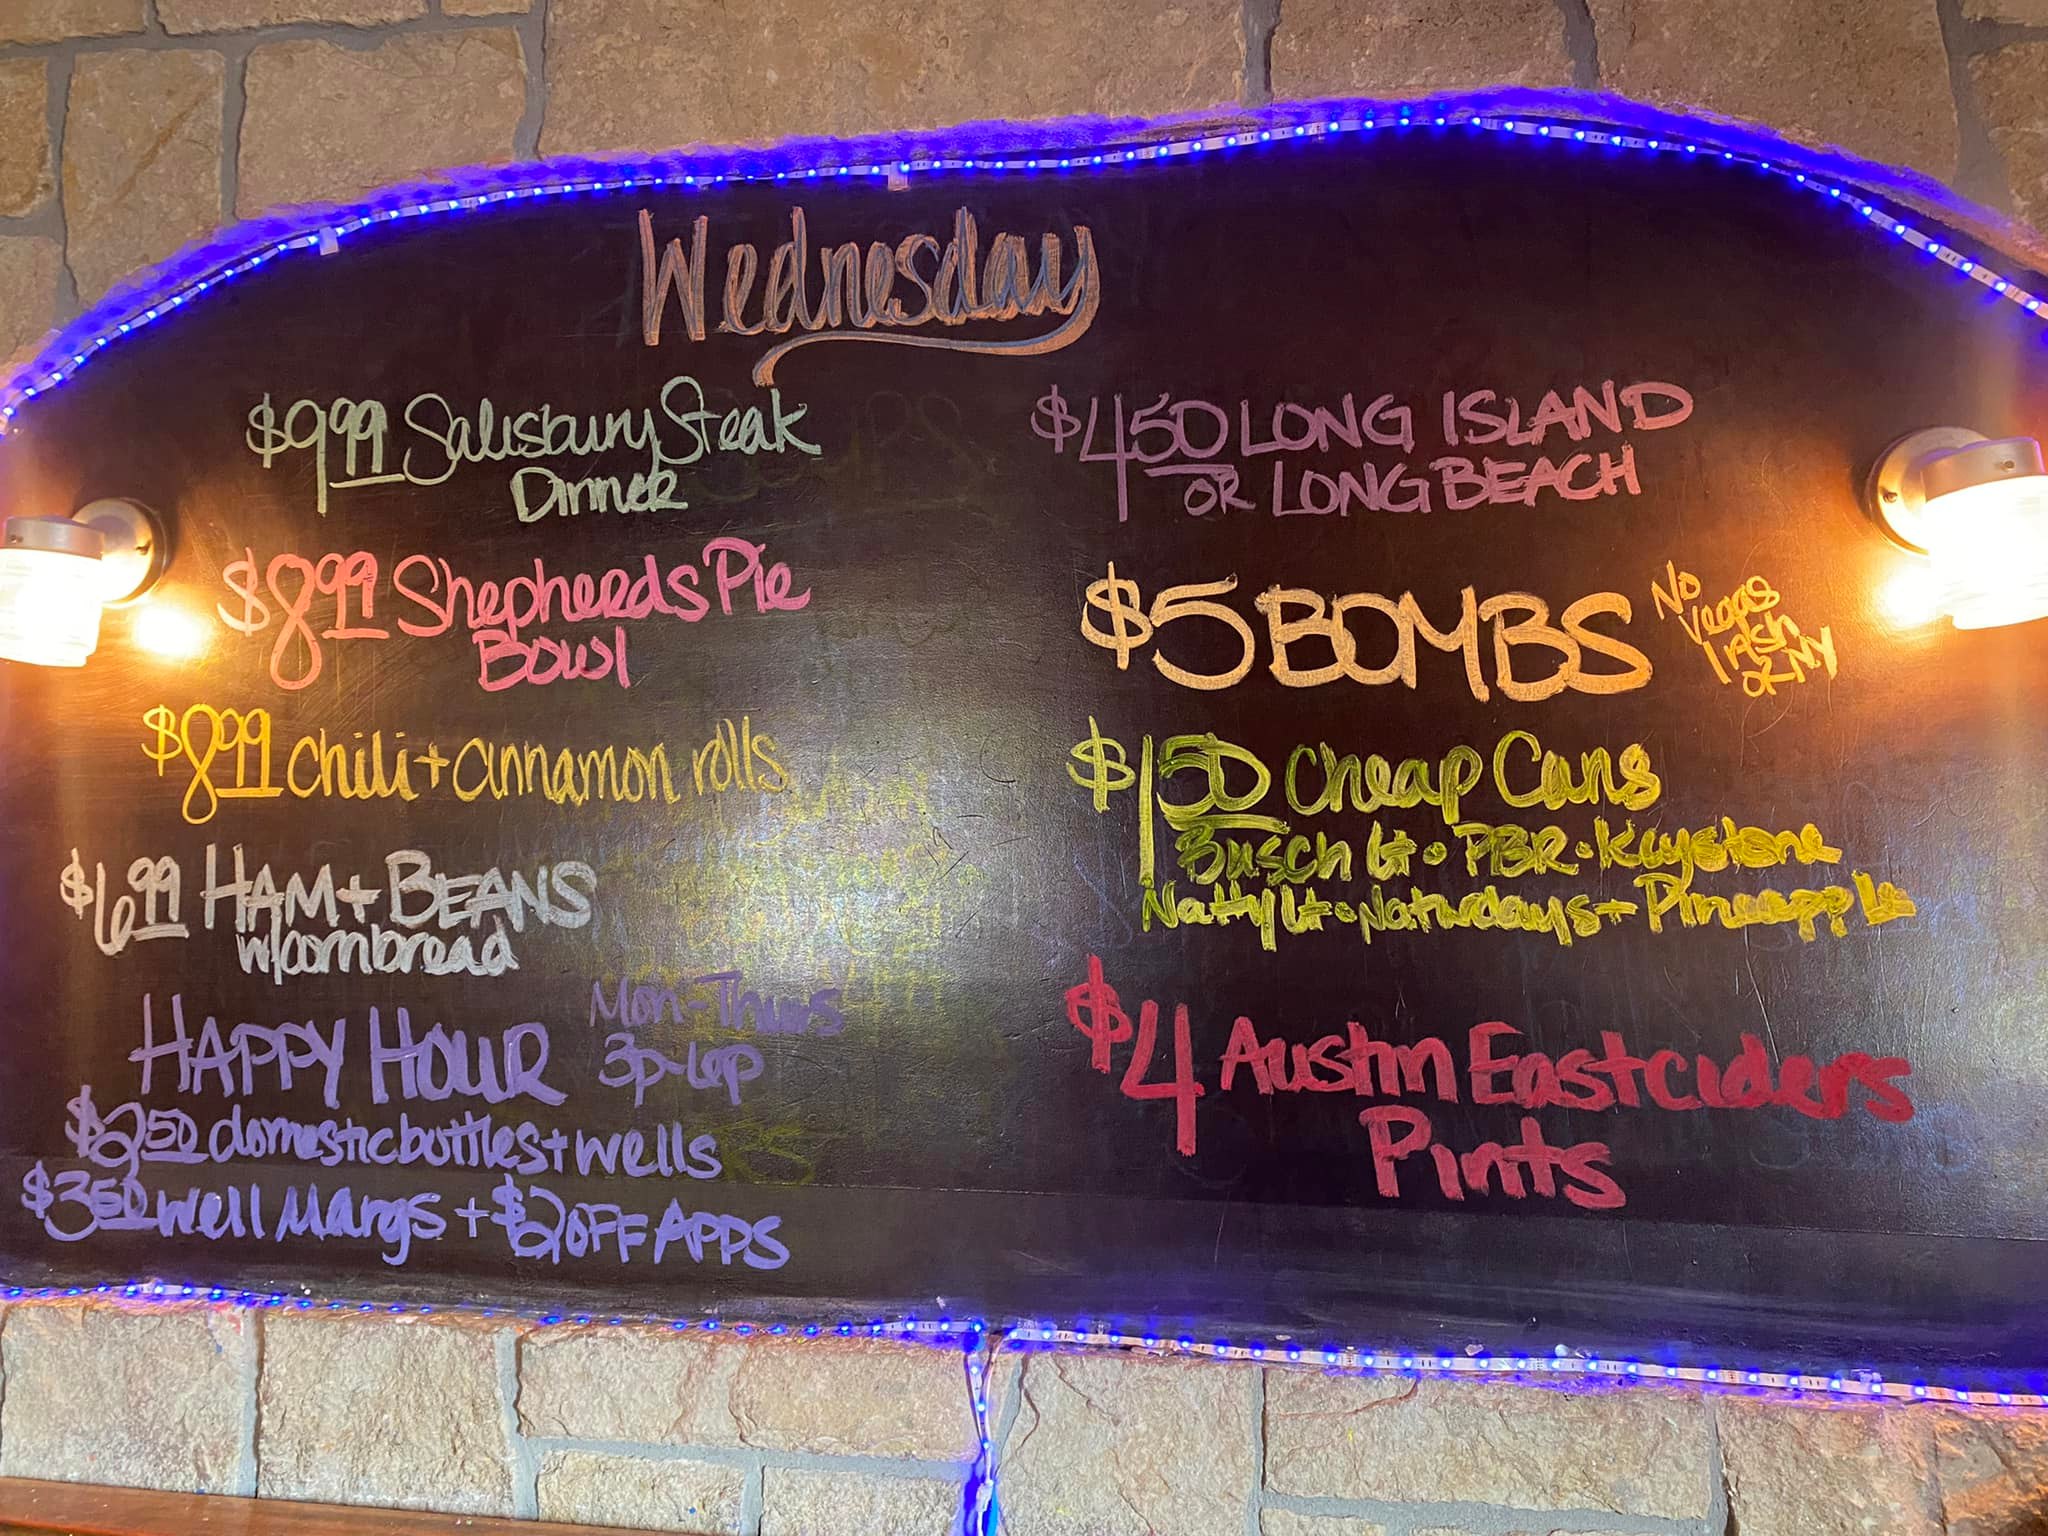 Wednesday
$9.99 Salisbury Steak
Dinner
$8.99 Shepherds Pie
Bowl
$8.99 chili + cinnamon rolls
$6.99 HAM + BEANS
w/cornbread
HAPPY HOUR Mon-Thurs
3p-6p
$2.50 domestic bottles + wells
$3.50 well Margs + $2 OFF APPS
$4.50 LONG ISLAND
OR LONG BEACH
$5 BOMBS
No
Vegas
Irish
or NY
$1.50 Cheap Cans
Busch Lt • PBR • Keystone
Natty Lt • Naturdays + Pineapple
$4 Austin Eastciders
Pints